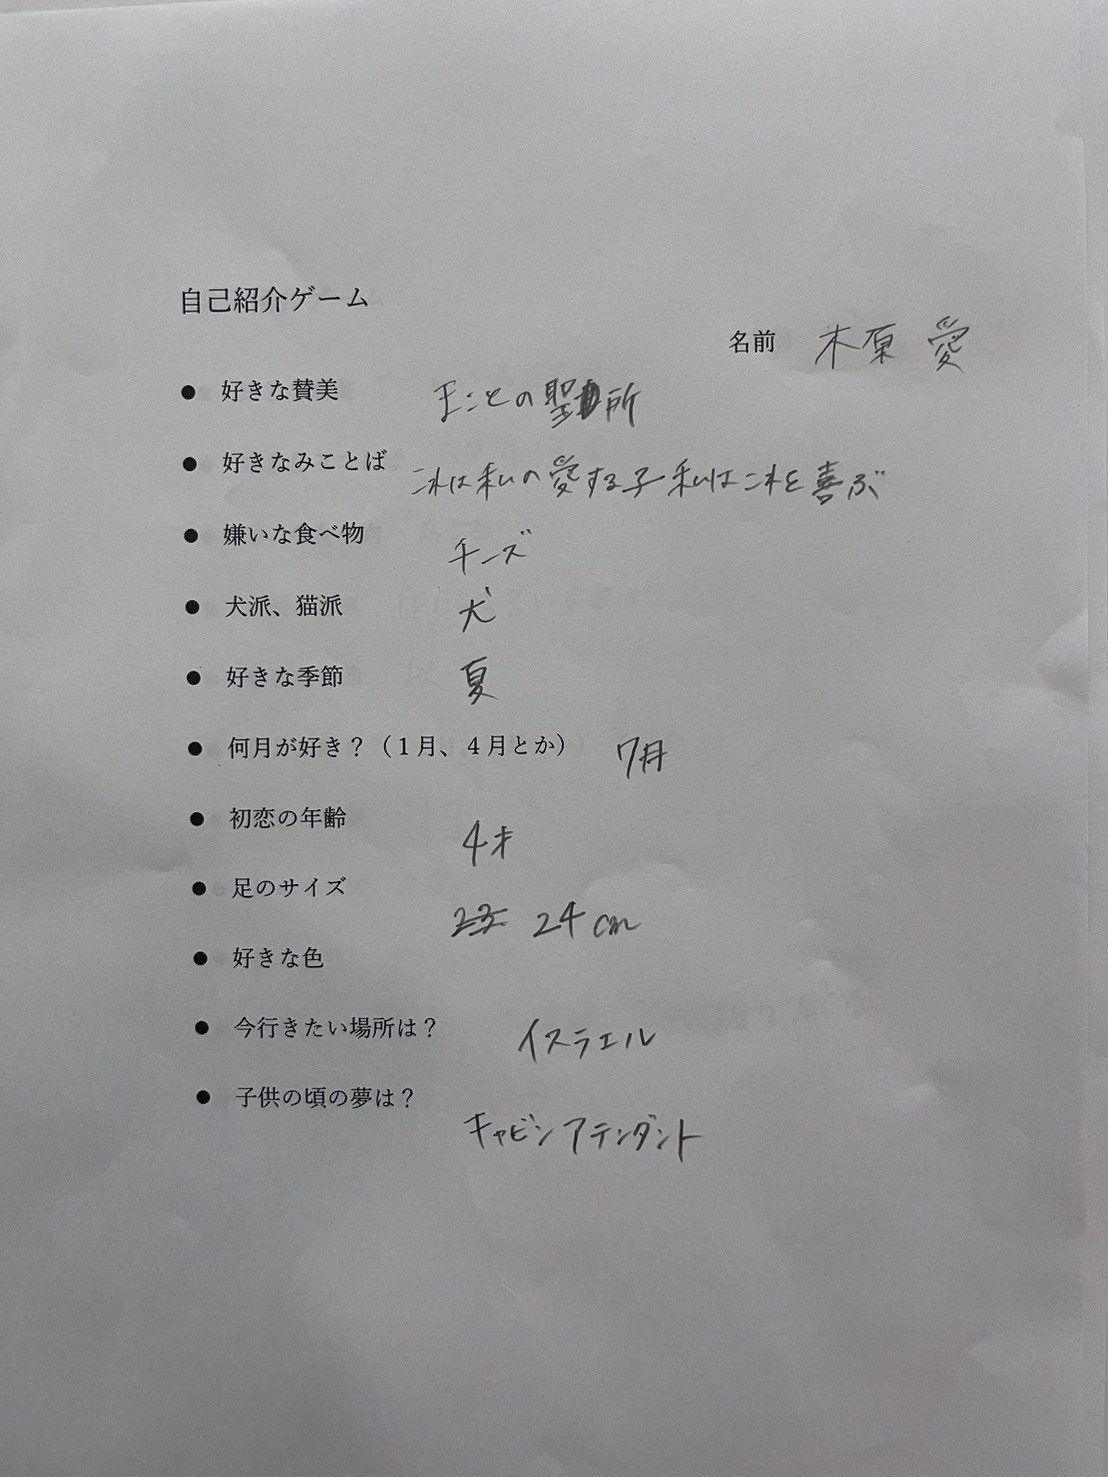 自己紹介ゲーム
名前 木原 愛
● 好きな賛美 まことの聖所
● 好きなみことば これは私の愛する子 私はこれを喜ぶ
● 嫌いな食べ物 チーズ
● 犬派、猫派 犬
● 好きな季節 夏
● 何月が好き？（１月、４月とか） 7月
● 初恋の年齢 4才
● 足のサイズ 23 24cm
● 好きな色
● 今行きたい場所は？ イスラエル
● 子供の頃の夢は？ キャビンアテンダント